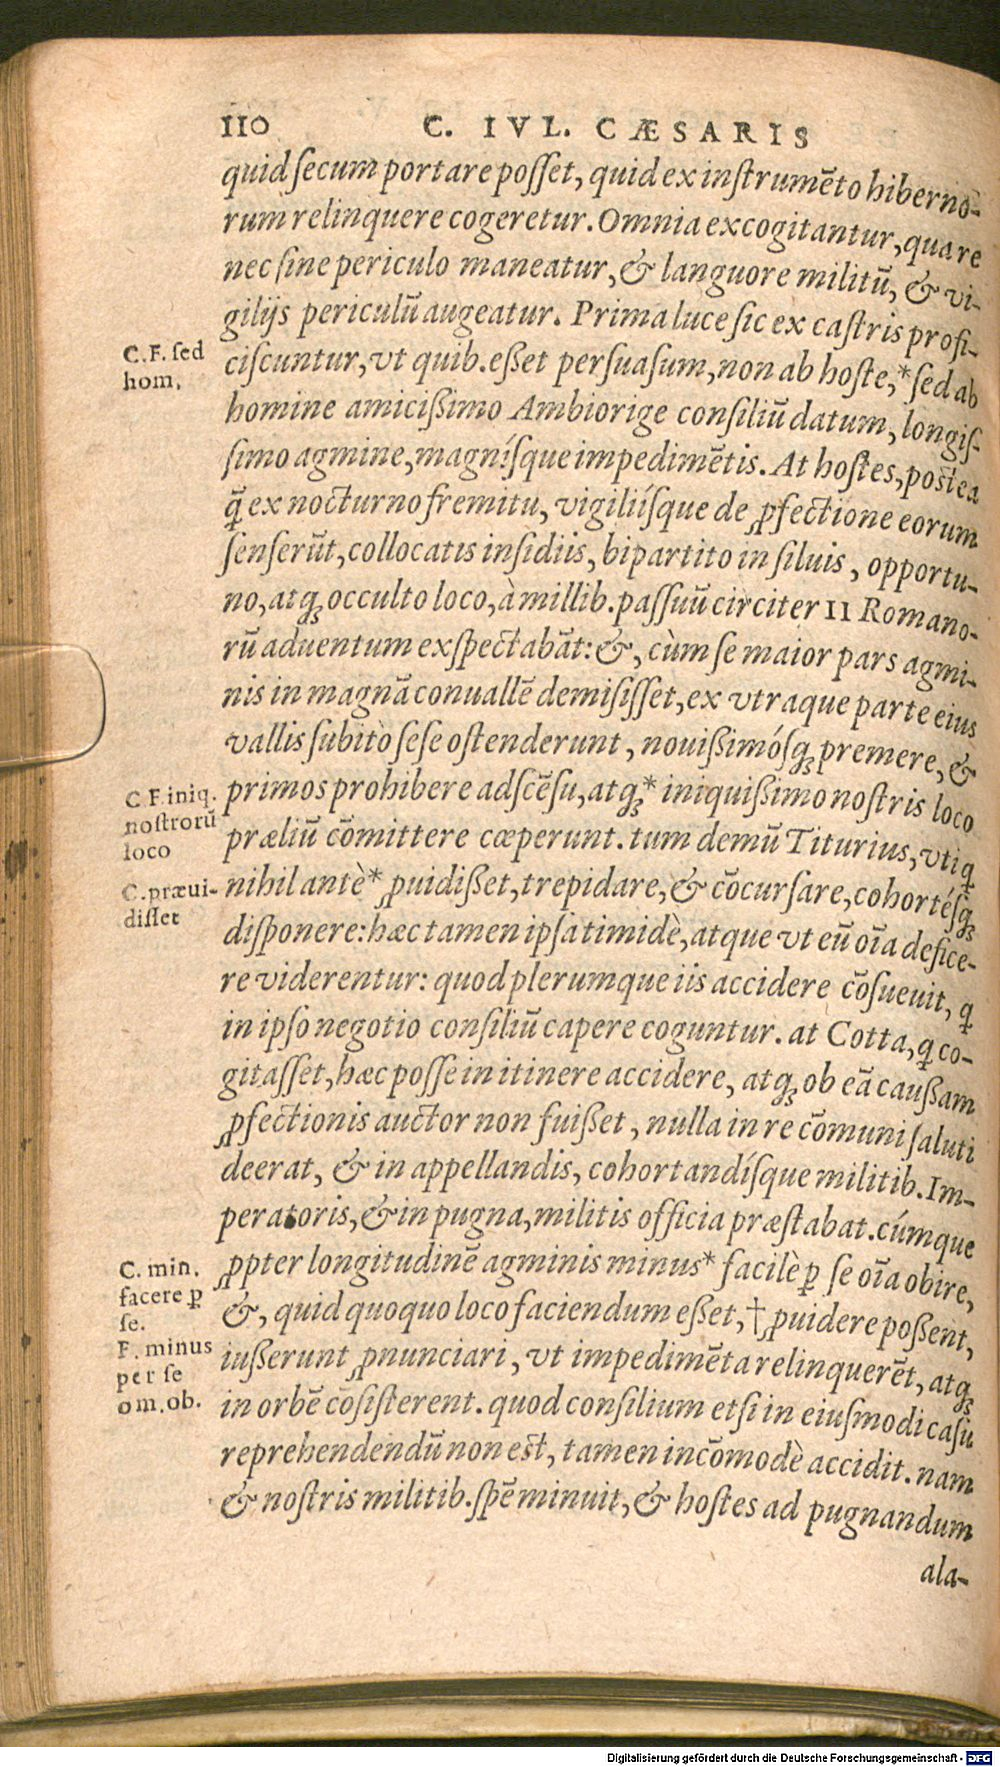 110 C. IVL. CÆSARIS
quid secum portare posset, quid ex instrumẽto hiberno-
rum relinquere cogeretur. Omnia excogitantur, quare
nec sine periculo maneatur, & languore militũ, & vi-
gilijs periculũ augeatur. Prima luce sic ex castris profi-
ciscuntur, vt quib. esset persuasum, non ab hoste,* sed ab
homine amicißimo Ambiorige consiliũ datum, longis-
simo agmine, magnísque impedimẽtis. At hostes, postea
q̃ ex nocturno fremitu, vigiliísque de ꝓfectione eorum
senserũt, collocatis insidiis, bipartito in siluis, opportu-
no, atq; occulto loco, à millib. passuũ circiter II Romano-
rũ aduentum exspectabãt: &, cùm se maior pars agmi-
nis in magnã conuallẽ demisisset, ex vtraque parte eius
vallis subitò sese ostenderunt, nouißimósq; premere, &
primos prohibere adscẽsu, atq;* iniquißimo nostris loco
præliũ cõmittere cœperunt. tum demũ Titurius, vti q
nihil antè* ꝓuidißet, trepidare, & cõcursare, cohortésq;
disponere: hæc tamen ipsa timidè, atque vt eũ oĩa defice-
re viderentur: quod plerumque iis accidere cõsueuit, q
in ipso negotio consiliũ capere coguntur. at Cotta, q co-
gitasset, hæc posse in itinere accidere, atq; ob eã caußam
ꝓfectionis auctor non fuißet, nulla in re cõmuni saluti
deerat, & in appellandis, cohortandísque militib. Im-
peratoris, & in pugna, militis officia præstabat. cúmque
ꝓpter longitudinẽ agminis minus* facilè ꝑ se oĩa obire,
&, quid quoquo loco faciendum eßet, † ꝓuidere poßent,
iußerunt ꝓnunciari, vt impedimẽta relinquerẽt, atq;
in orbẽ cõsisterent. quod consilium etsi in eiusmodi casu
reprehendendũ non est, tamen incõmodè accidit. nam
& nostris militib. spẽ minuit, & hostes ad pugnandum
ala-
C. F. sed
hom.
C F. iniq.
nostrorũ
loco
C. præui-
disset
C. min.
facere ꝑ
se.
F. minus
per se
om. ob.
Digitalisierung gefördert durch die Deutsche Forschungsgemeinschaft - DFG